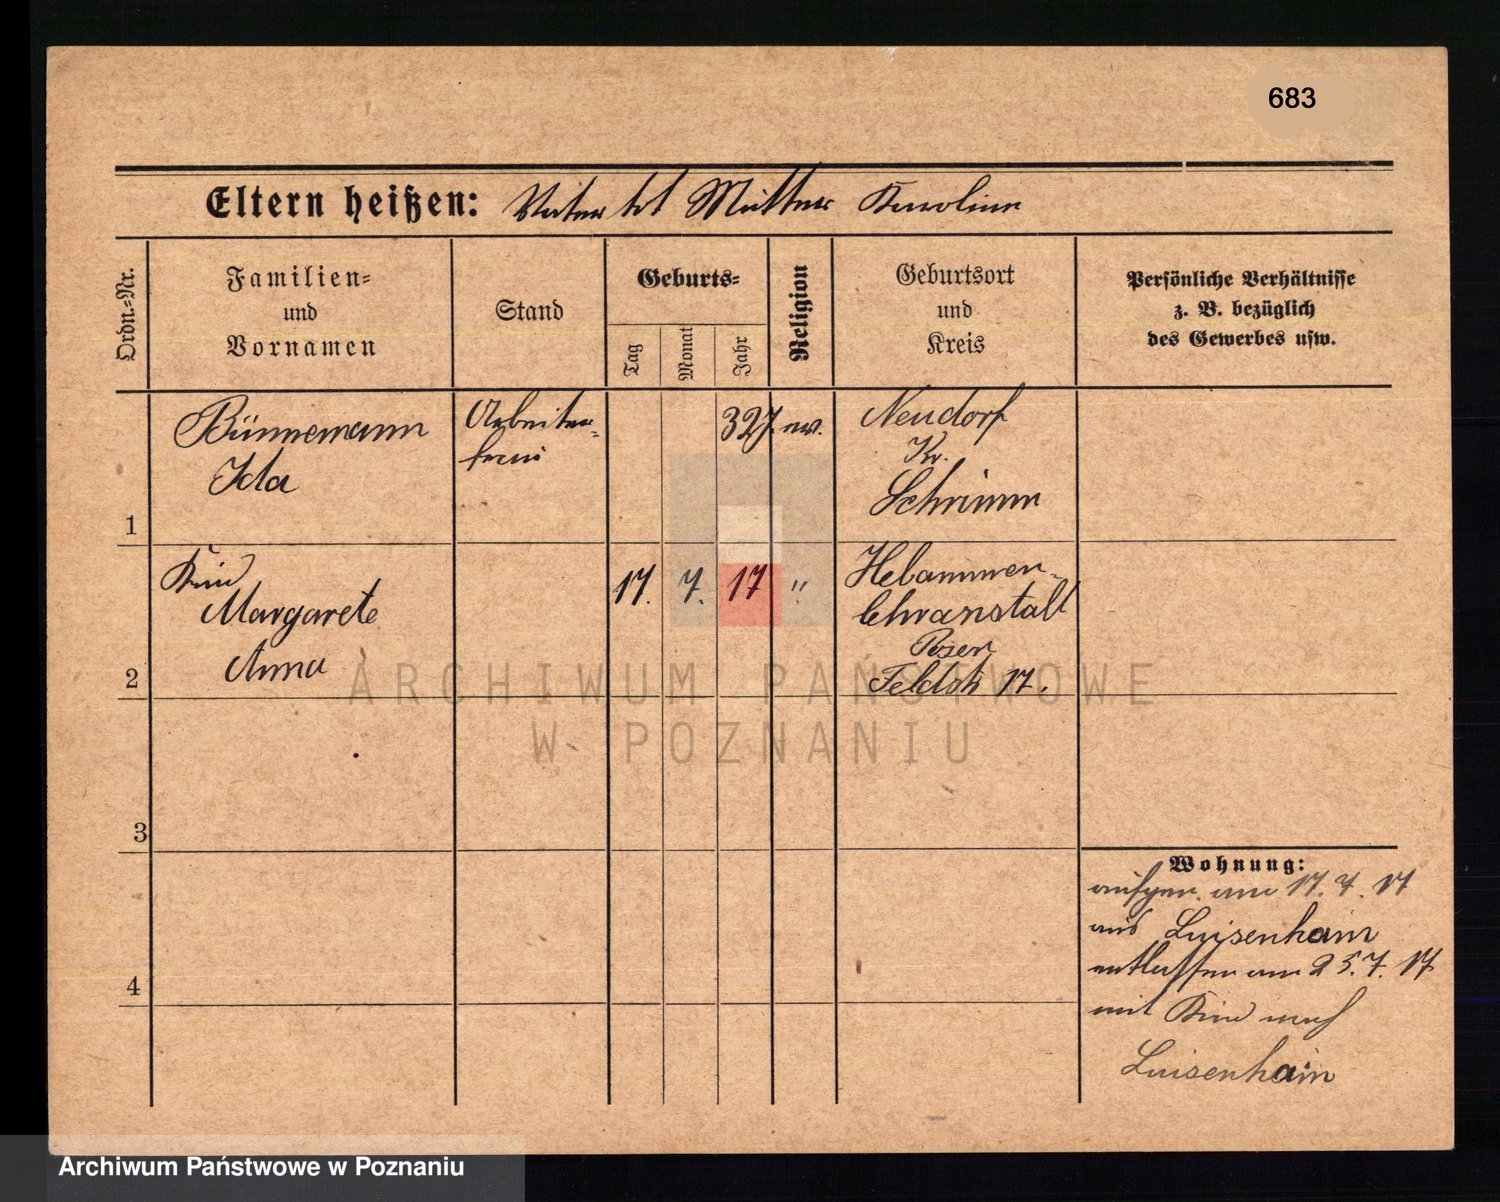 683
Eltern heißen: Vater tot Mutter Karoline
Ordn.-Nr.
Familien-
und
Vornamen
Stand
Geburts-
Tag
Monat
Jahr
Religion
Geburtsort
und
Kreis
Persönliche Verhältnisse
z. B. bezüglich
des Gewerbes usw.
1
Bünnemann
Ida
Arbeiter-
frau
32 J.
ev.
Neudorf
Kr.
Schrimm
2
Kind
Margarete
Anna
17.
7.
17
"
Hebammen-
lehranstalt
Posen
Feldstr 17.
3
4
Wohnung:
aufgen. am 17. 7. 17
aus Luisenhain
entlassen am 25. 7. 17
mit Kind nach
Luisenhain
ARCHIWUM PAŃSTWOWE
W POZNANIU
Archiwum Państwowe w Poznaniu